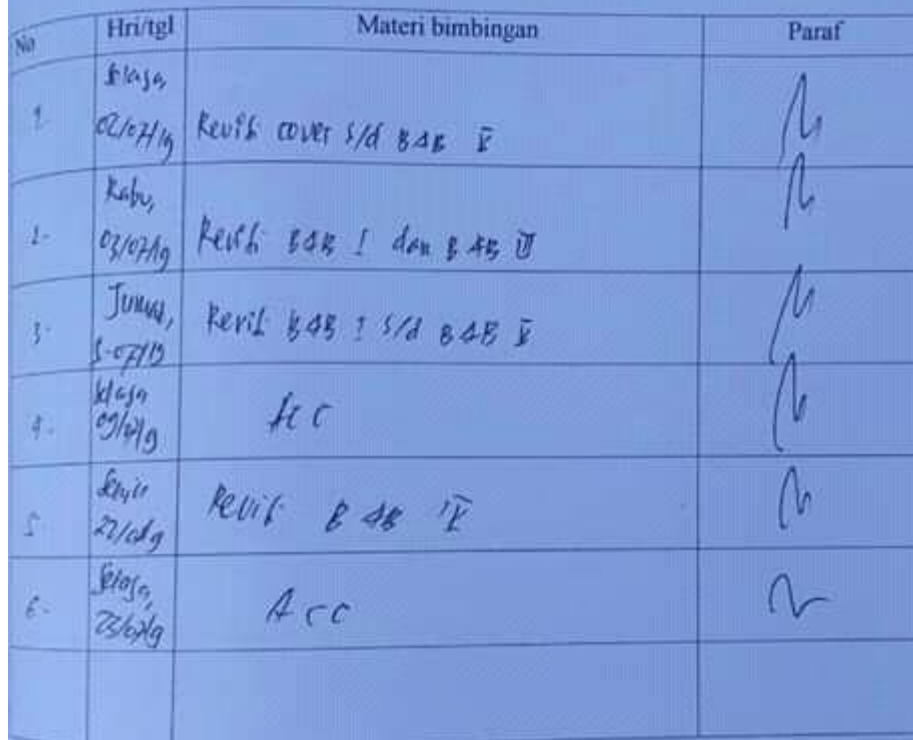 No Hri/tgl Materi bimbingan Paraf
1. Selasa,
02/07/19 Revisi cover s/d BAB V
2. Rabu,
03/07/19 Revisi BAB I dan BAB III
3. Jumat,
5-07/19 Revisi BAB I s/d BAB V
4. Selasa
09/07/19 Acc
5 Senin
22/07/19 Revisi BAB IV
6. Selasa,
23/07/19 Acc